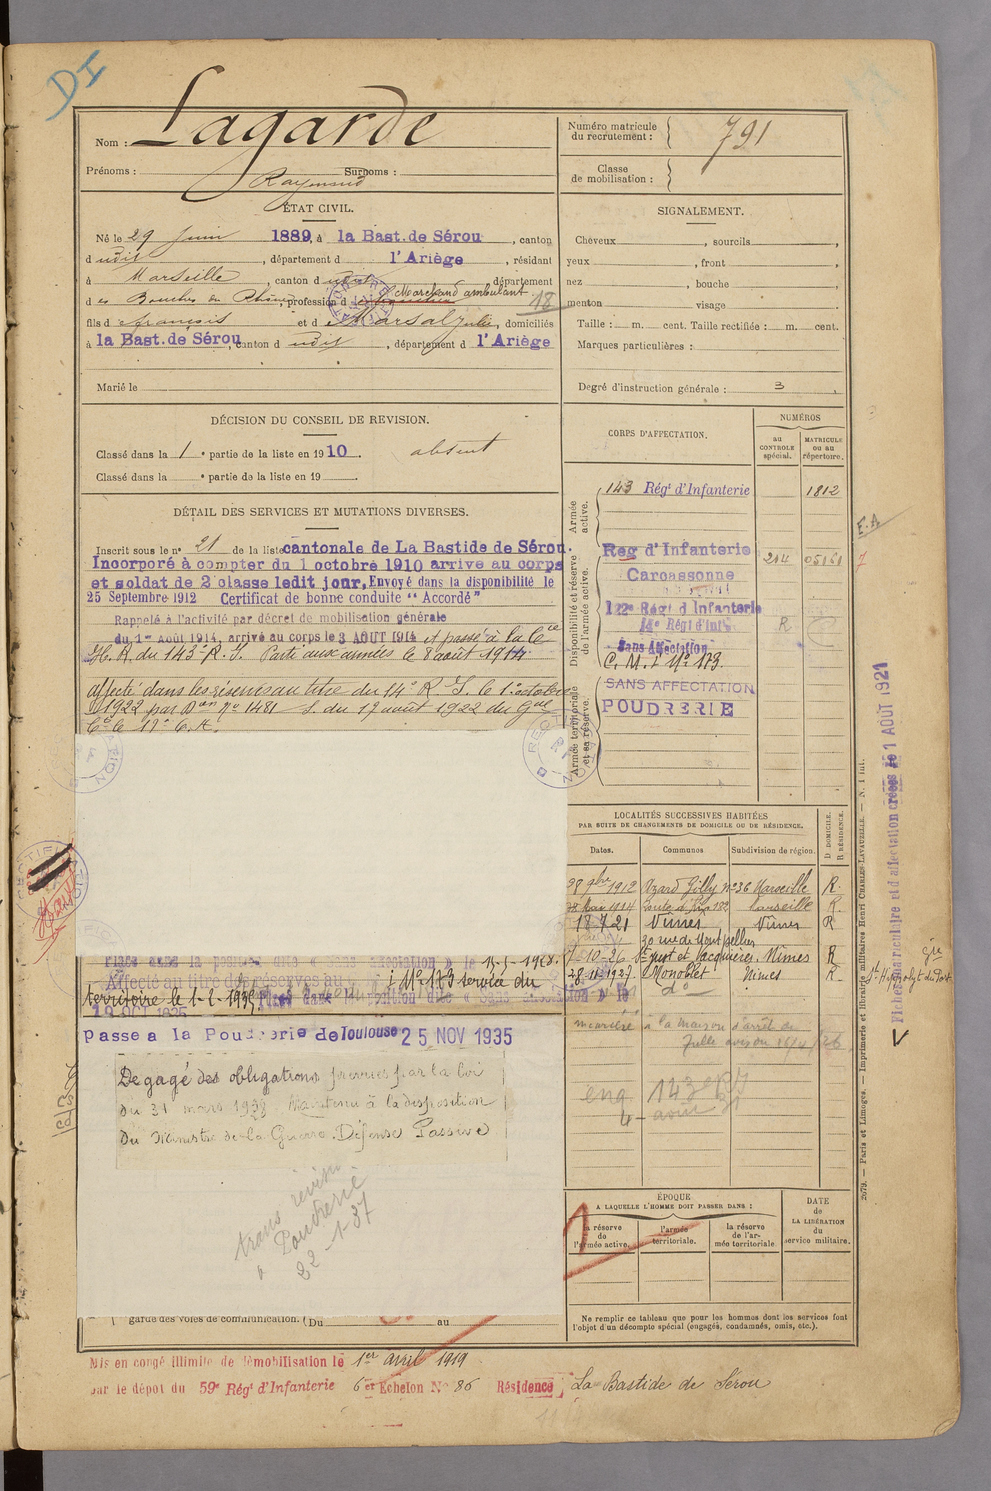 DI
Nom : Lagarde
Prénoms : Raymond Surnoms :
Numéro matricule du recrutement : 791
Classe de mobilisation :
ÉTAT CIVIL.
Né le 29 Juin 1889, à la Bast. de Sérou, canton
d udit, département d l'Ariège, résidant
à Marseille, canton d udit, département
d es Bouches du Rhône, profession d Marchand ambulant
18
fils d François et d Marsal Julie, domiciliés
à la Bast. de Sérou, canton d udit, département d l'Ariège
Marié le
SIGNALEMENT.
Cheveux , sourcils ,
yeux , front ,
nez , bouche ,
menton visage
Taille : m. cent. Taille rectifiée : m. cent.
Marques particulières :
Degré d'instruction générale : 3
DÉCISION DU CONSEIL DE REVISION.
Classé dans la 1 e partie de la liste en 1910. absent
Classé dans la e partie de la liste en 19 .
DÉTAIL DES SERVICES ET MUTATIONS DIVERSES.
Inscrit sous le n° 21 de la liste cantonale de La Bastide de Sérou.
Incorporé à compter du 1 octobre 1910 arrive au corps
et soldat de 2 classe ledit jour, Envoyé dans la disponibilité le
25 Septembre 1912 Certificat de bonne conduite "Accordé"
Rappelé à l'activité par décret de mobilisation générale
du 1er Août 1914, arrivé au corps le 3 AOUT 1914 et passé à la Cie
H. R. du 143e R. I. Parti aux armées le 8 août 1914
affecté dans les réserves au titre du 14e R. I. le 1er octobre
1922 par Don No 1481 S. du 17 août 1922 du Gal
Ct le 17e C. A.
15-1-1928.
Affecté au titre des réserves au No 173 service du
territoire le 1-1-1935. Placé dans la position dite « Sans affectation » le
19 OCT 1935
passe a la Poudrerie de Toulouse 25 NOV 1935
Dégagé des obligations prévues par la loi
du 31 mars 1928 Maintenu à la disposition
du Ministre de la Guerre. Défense Passive
trans revis
a Poudrerie
22-1-37
garde des voies de communication. (Du au
CORPS D'AFFECTATION.
NUMÉROS
au CONTROLE spécial.
MATRICULE ou au répertoire.
Armée active.
143 Régt d'Infanterie 1812
Disponibilité et réserve de l'armée active.
Reg d'Infanterie 214 05161
Carcassonne
122e Régt d'Infanterie
14e Régt d'Inf. R
Sans Affectation
C. M. I No 173
Armée territoriale et sa réserve.
SANS AFFECTATION
POUDRERIE
E.A
7
LOCALITÉS SUCCESSIVES HABITÉES
PAR SUITE DE CHANGEMENTS DE DOMICILE OU DE RÉSIDENCE.
Dates. Communes Subdivision de région. D DOMICILE. R RÉSIDENCE.
28 9bre 1912 Azard Gilly no 36 Marseille R.
Marseille R.
18 7 21 Nîmes Nîmes R
30 rue de Montpellier
7-10-26 St Just et Vacquières, Nîmes R
28-11-1927. Monoblet Nîmes R
do
incarcéré à la maison d'arrêt de
Tulle avis du 16/4/36.
eng 143e RI
4 août 31
ÉPOQUE
A LAQUELLE L'HOMME DOIT PASSER DANS :
la réserve de l'armée active.
l'armée territoriale.
la réserve de l'armée territoriale.
DATE de LA LIBÉRATION du service militaire.
Ne remplir ce tableau que pour les hommes dont les services font
l'objet d'un décompte spécial (engagés, condamnés, omis, etc.).
Mis en congé illimité de démobilisation le 1er avril 1919
par le dépôt du 59e Régt d'Infanterie 6e Echelon No 86 Résidence La Bastide de Sérou
Fiches matriculaire et d'affectation créées le 1 AOUT 1921
2079. — Paris et Limoges. — Imprimerie et librairie militaires Henri CHARLES-LAVAUZELLE. — N. 1 int.
St Hippolyte du Fort